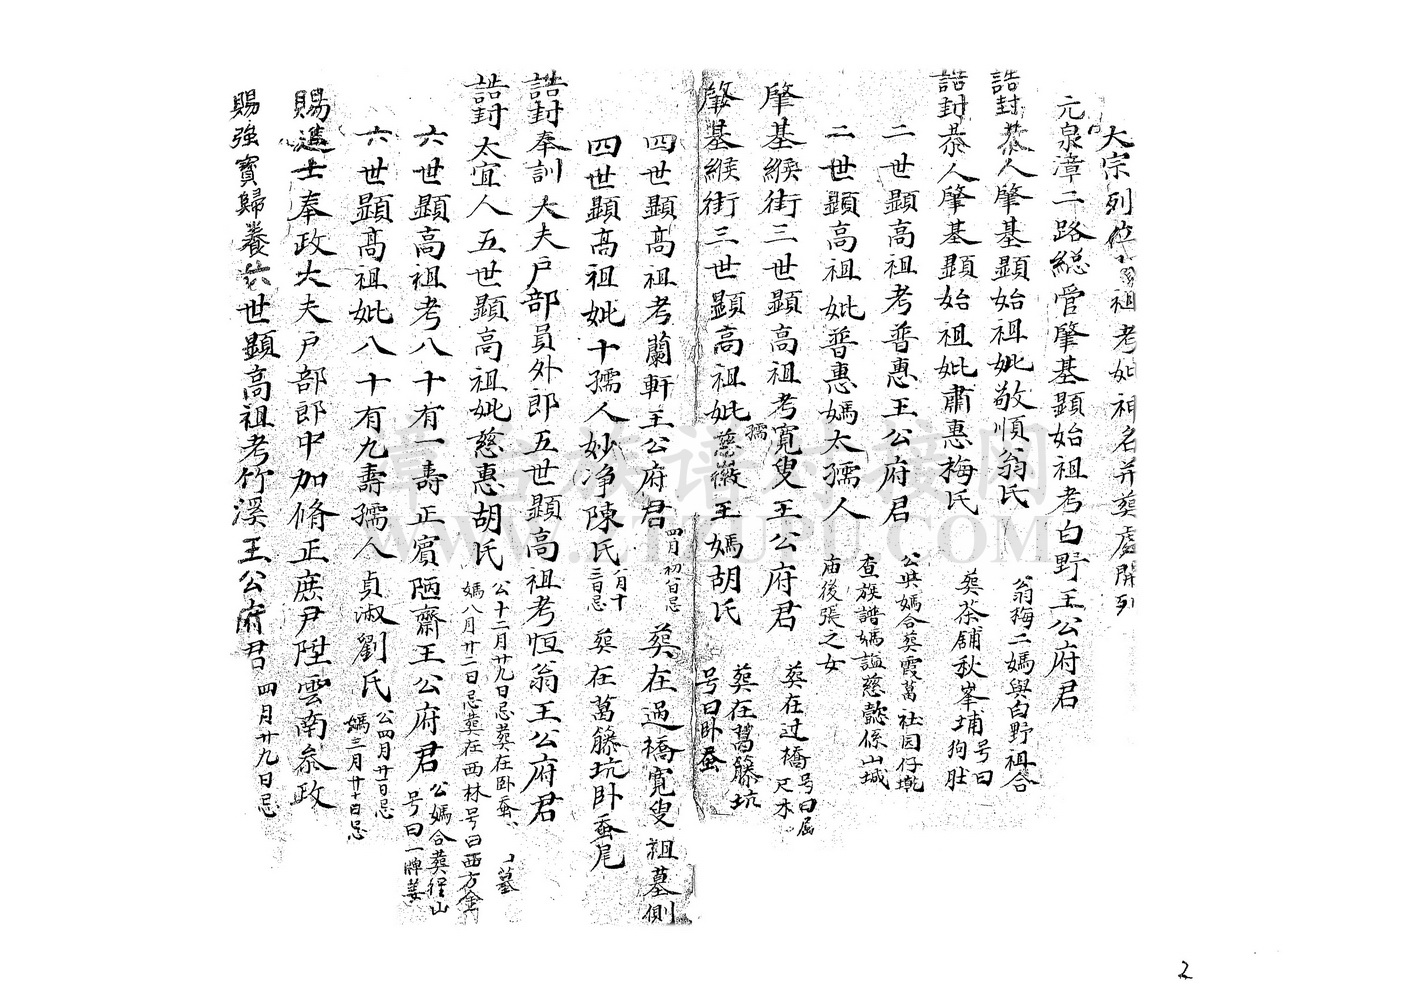 大宗列位祖考妣祖名并葬處開列
元泉漳二路總管肇基顯始祖考白野王公府君
誥封恭人肇基顯始祖妣敬順翁氏
翁梅二媽與白野祖合
誥封恭人肇基顯始祖妣肅惠梅氏
葬茶舖秋峯埔号曰狗肚
二世顯高祖考普惠王公府君
公與媽合葬霞萬社园仔墘
二世顯高祖妣普惠媽太孺人
查族譜媽謚慈懿係山城
庙後張之女
肇基緱街三世顯高祖考寬叟王公府君
葬在过橋号曰屈尺木
肇基緱街三世顯高祖妣慈孺徽王媽胡氏
葬在萬籐坑
号曰卧蚕
四世顯高祖考蘭軒王公府君
四月初八日忌
葬在過橋寬叟祖墓側
四世顯高祖妣十孺人妙净陳氏
八月十三日忌
葬在萬籐坑卧蚕尾
誥封奉訓大夫户部員外郎五世顯高祖考恒翁王公府君
誥封太宜人五世顯高祖妣慈惠胡氏
公十二月廿九日忌葬在卧蚕墓
媽八月廿二日忌葬在西林号曰西方金
六世顯高祖考八十有一壽正賓陋齋王公府君
公媽合葬徑山
号曰一牌姜
六世顯高祖妣八十有九壽孺人貞淑劉氏
公四月廿一日忌
媽三月廿十日忌
賜進士奉政大夫户部郎中加脩正庶尹陞雲南叅政
賜強寶歸養六世顯高祖考竹溪王公府君
四月廿九日忌
章台族谱对接网
WWW.ZTZUPU.COM
2